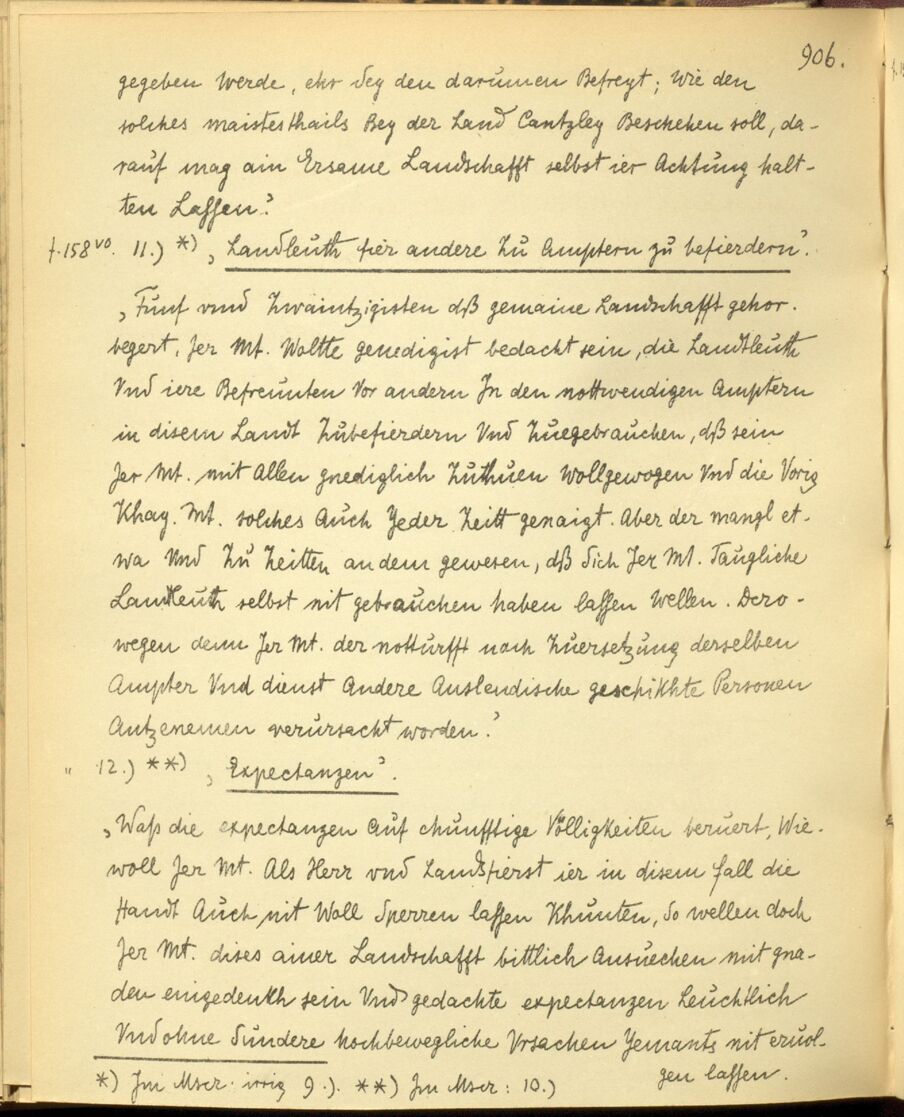 906.
gegeben werde, ehr seÿ den darumen Befreyt; wie den
solches maistesthails Beÿ der Land Cantzleÿ Beschehen soll, da-
rauf mag ain Ersame Landschafft selbst ier Achtung halt-
ten Lassen.'
f. 158 vo. 11.) *) ‚Landleuth fier andere Zu Amptern zu befierdern'.
‚Funf vnnd Zwaintzigisten dß gemaine Landschafft gehor.
begert, Jer Mt. Woltte genedigist bedacht sein, die Landtleuth
Vnd iere Befreunten Vor andern In den nottwendigen Amptern
in disem Landt Zubefierdern Vnd Zuegebrauchen, dß sein
Jer Mt. mit Allen gnediglich Zuthuen wollgewogen Vnd die Vorig
Khaÿ. Mt. solches Auch Yeder Zeitt genaigt. Aber der mangl et-
wa Vnd Zu Zeitten an dem gewesen, dß sich Jer Mt. Taugliche
Landleuth selbst nit gebrauchen haben lassen wellen. Dero-
wegen denn Jer Mt. der notturfft nach Zuersetzung derselben
Ampter Vnd dienst Andere Auslendische geschikhte Personen
Antzenemen verursacht worden.'
" 12.) **) ‚Expectanzen'.
‚Waß die expectanzen Auf chunfftige Völligkeiten beruert, Wie-
woll Jer Mt. Als Herr vnd Landsfierst ier in disem fall die
Handt Auch nit Woll Sperren lassen Khunten, So wellen doch
Jer Mt. dises ainer Landschafft bittlich Ansuechen mit gna-
den eingedenkh sein Vnd gedachte expectanzen Leuchtlich
Vnd ohne Sundere hochbewegliche Vrsachen Yemants nit eruol-
gen lassen.
*) Im Mscr. irrig 9.). **) Im Mscr: 10.)